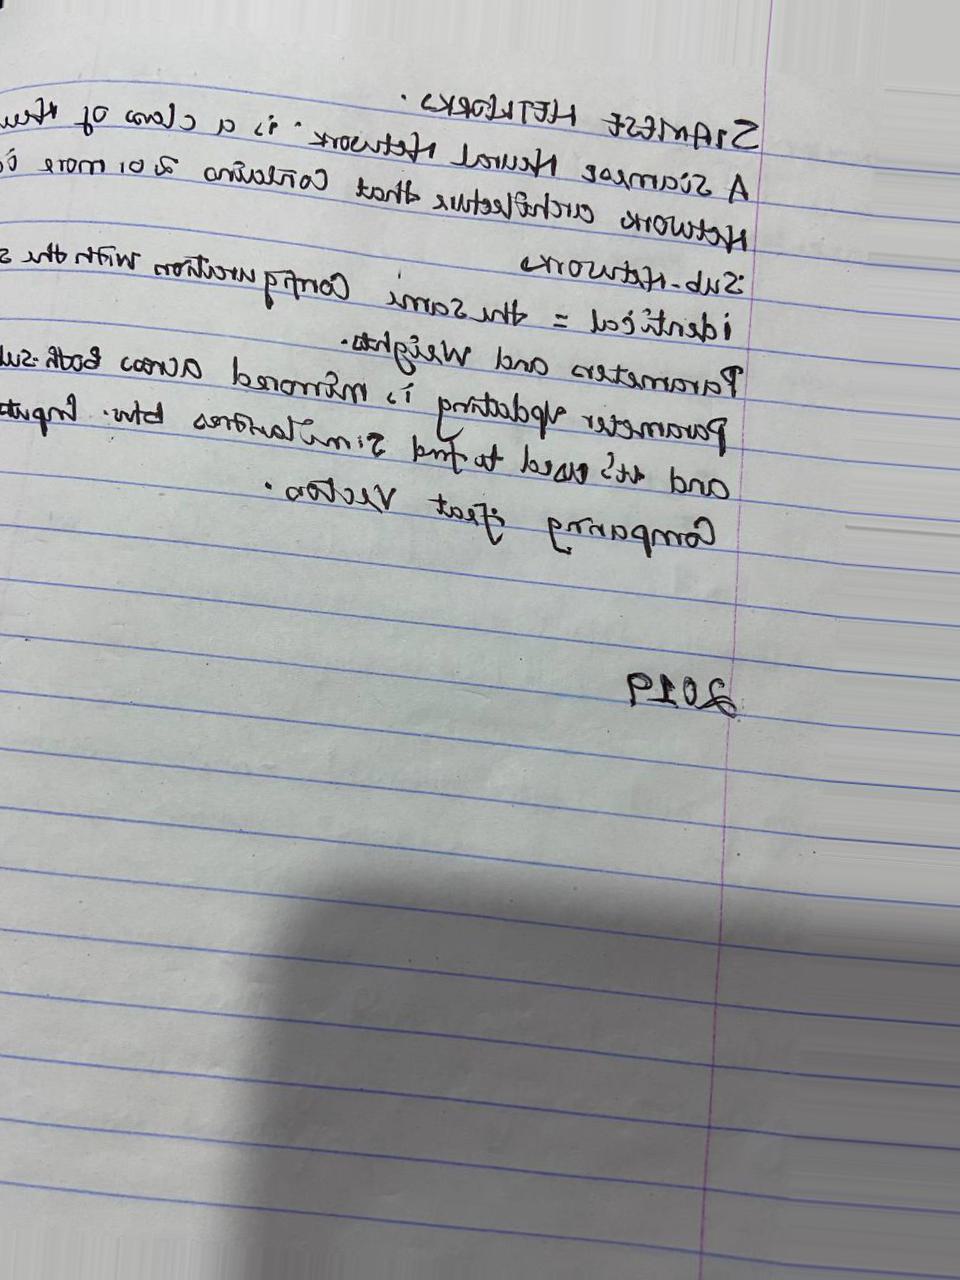 SIAMESE NETWORKS.
A Siamese Neural Network. is a class of
Network architecture that Contains 2 or more
Sub-Networks
identical = the same Configuration with the
Parameters and Weights.
Parameter updating is mirrored across both
and it's used to find Similarities btw. Inputs
Comparing feat Vectors.
2019